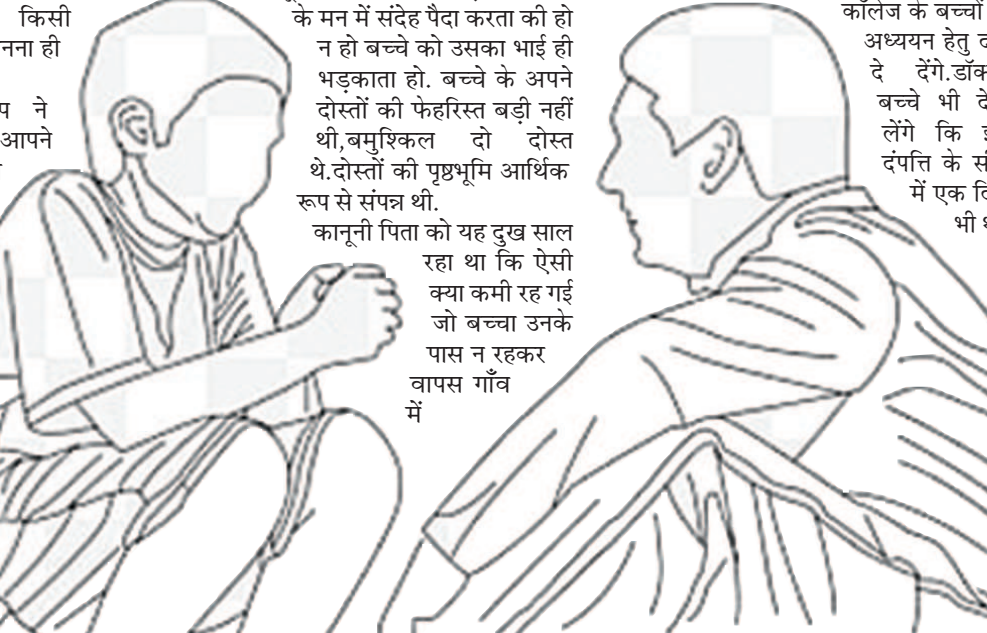 किसी
नना ही
प ने
आपने
के मन में संदेह पैदा करता की हो
न हो बच्चे को उसका भाई ही
भड़काता हो. बच्चे के अपने
दोस्तों की फेहरिस्त बड़ी नहीं
थी,बमुश्किल दो दोस्त
थे.दोस्तों की पृष्ठभूमि आर्थिक
रूप से संपन्न थी.
कानूनी पिता को यह दुख साल
रहा था कि ऐसी
क्या कमी रह गई
जो बच्चा उनके
पास न रहकर
वापस गाँव
में
कॉलेज के बच्चों
अध्ययन हेतु
दे देंगे.डॉक
बच्चे भी दे
लेंगे कि
दंपत्ति के
में एक
भी